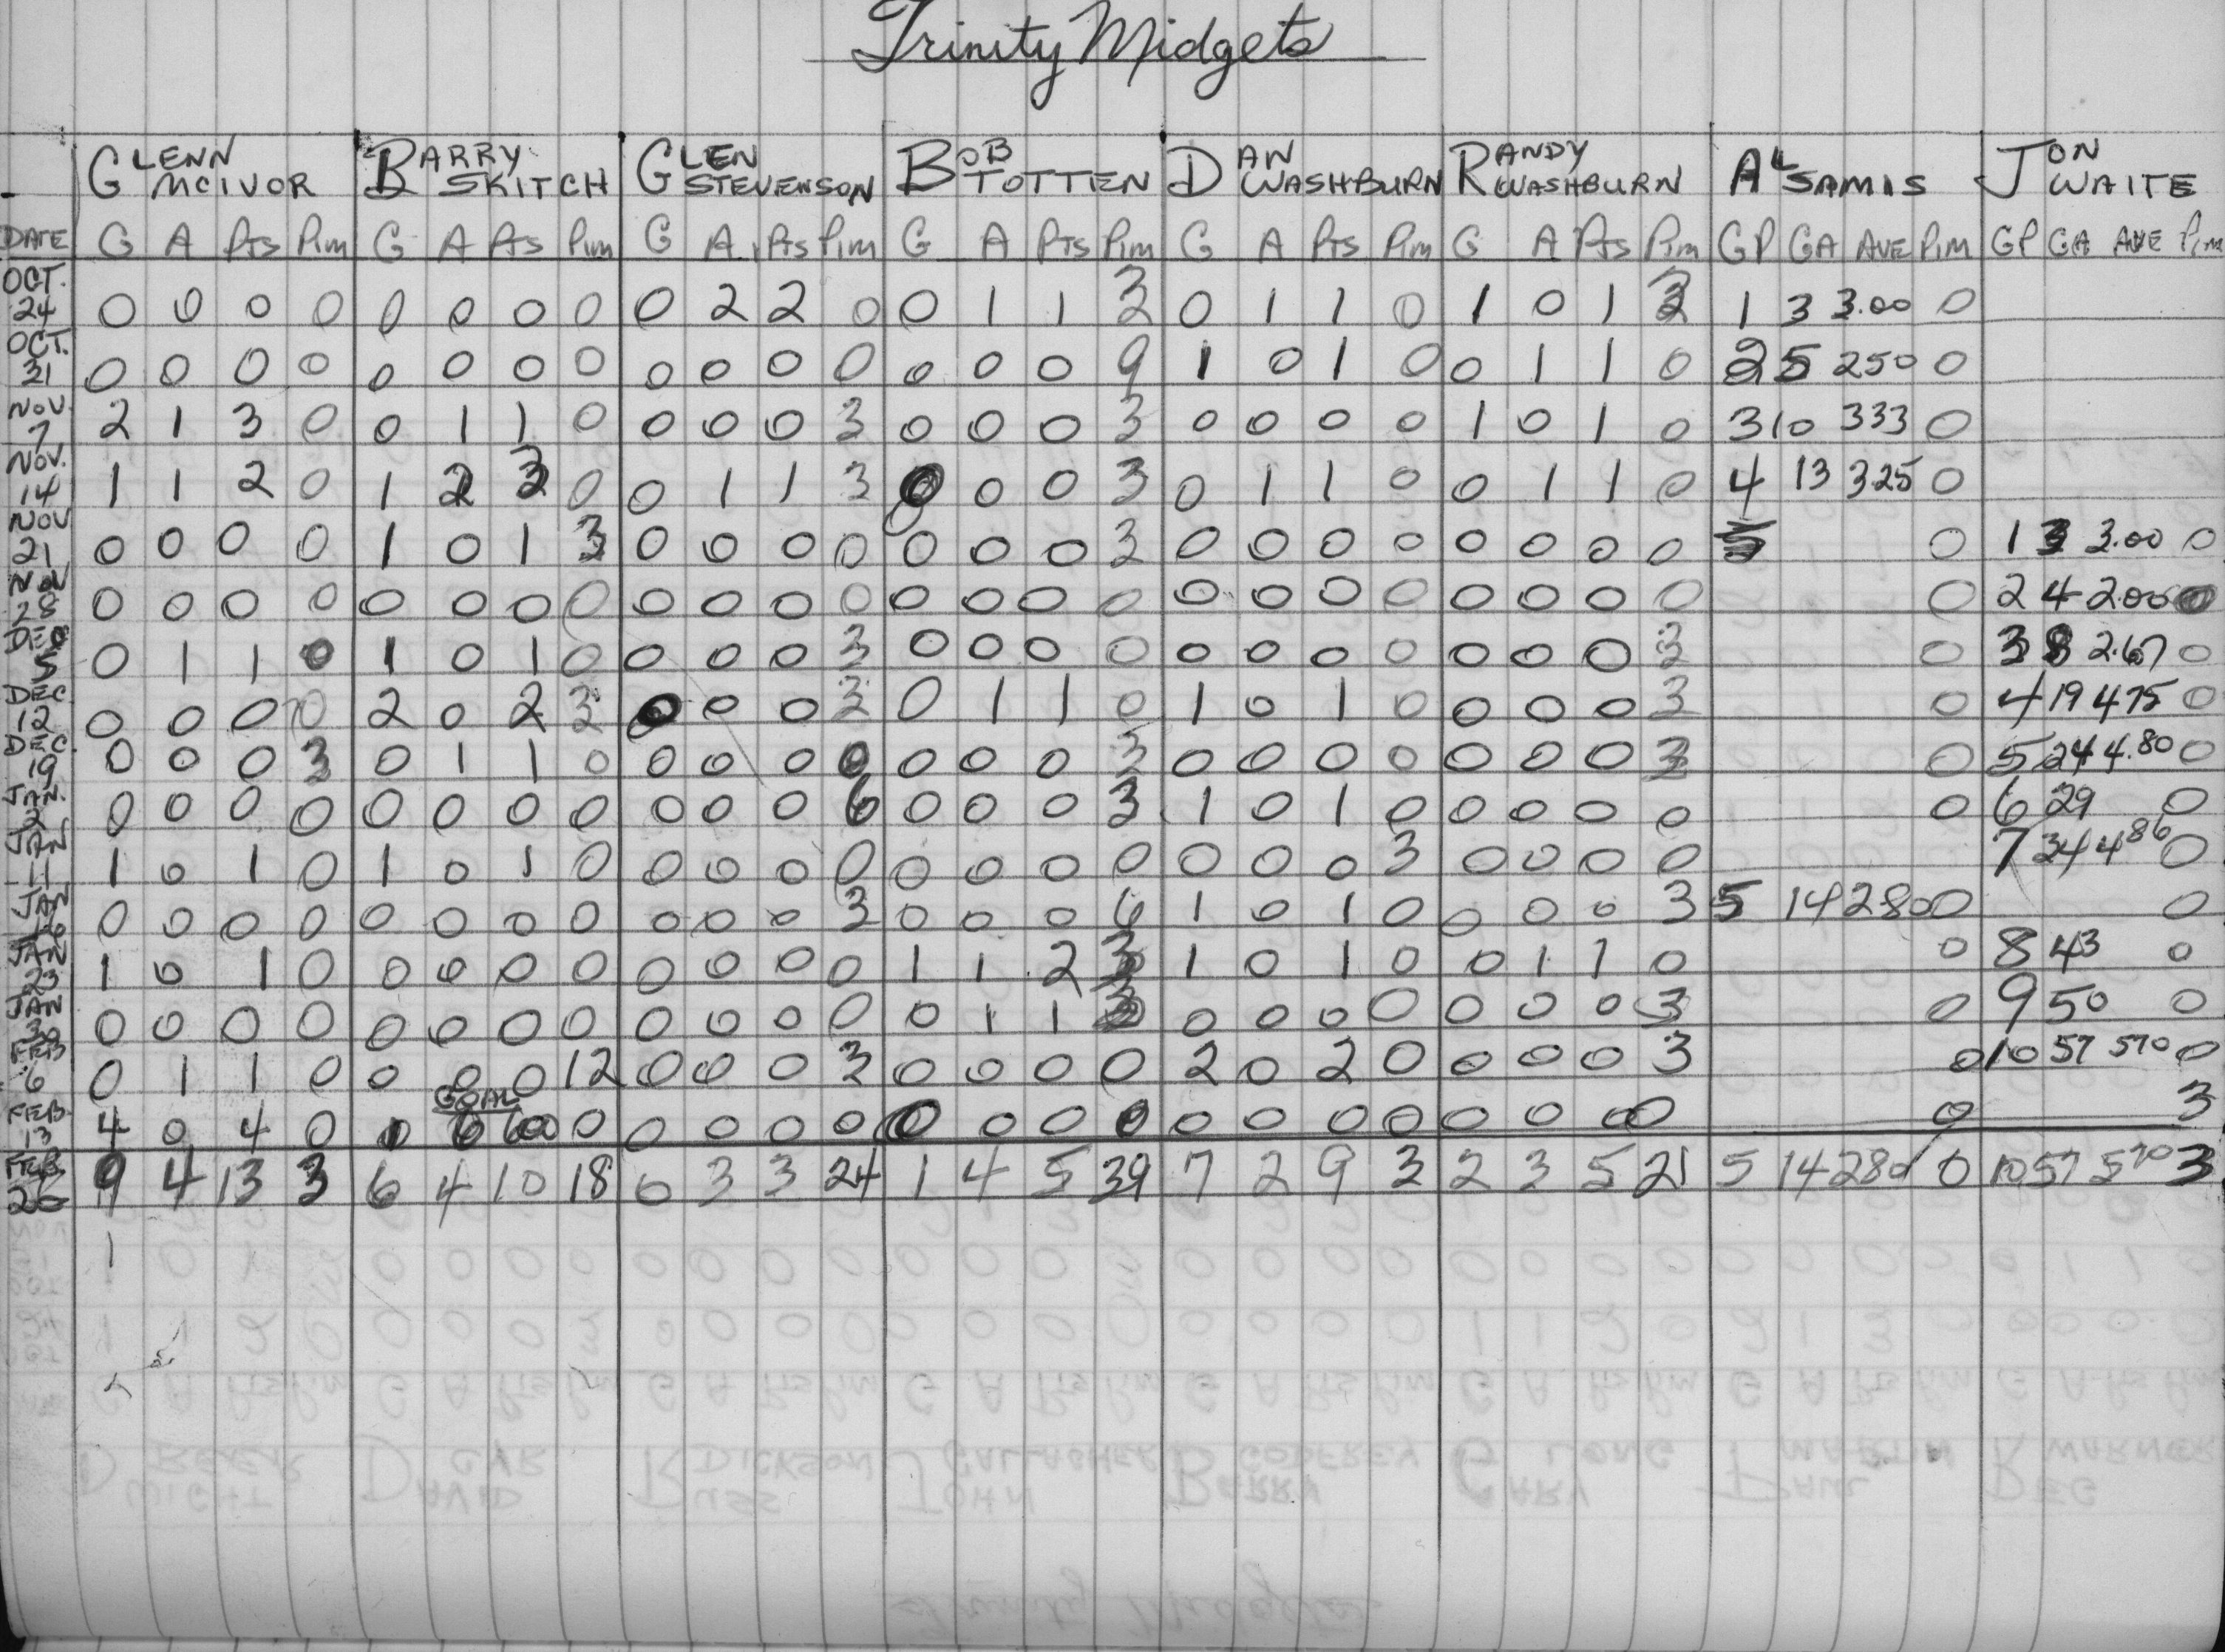 Trinity Midgets
GLENN MCIVOR BARRY SKITCH GLEN STEVENSON BOB TOTTEN DAN WASHBURN RANDY WASHBURN AL SAMIS JON WAITE
DATE G A Pts Pim G A Pts Pim G A Pts Pim G A Pts Pim G A Pts Pim G A Pts Pim GP GA AVE Pim GP GA AVE Pim
OCT. 24 0 0 0 0 0 0 0 0 0 2 2 0 0 1 1 3 0 1 1 0 1 0 1 3 1 3 3.00 0
OCT. 31 0 0 0 0 0 0 0 0 0 0 0 0 0 0 0 9 1 0 1 0 0 1 1 0 2 5 250 0
NOV. 7 2 1 3 0 0 1 1 0 0 0 0 3 0 0 0 3 0 0 0 0 1 0 1 0 3 10 333 0
NOV. 14 1 1 2 0 1 2 3 0 0 1 1 3 0 0 0 3 0 1 1 0 0 1 1 0 4 13 325 0
NOV 21 0 0 0 0 1 0 1 3 0 0 0 0 0 0 0 3 0 0 0 0 0 0 0 0 0 1 3 3.00 0
NOV 28 0 0 0 0 0 0 0 0 0 0 0 0 0 0 0 0 0 0 0 0 0 0 0 0 0 2 4 2.00 0
DEC 5 0 1 1 0 1 0 1 0 0 0 0 3 0 0 0 0 0 0 0 0 0 0 0 3 0 3 8 2.67 0
DEC 12 0 0 0 0 2 0 2 3 0 0 0 3 0 1 1 0 1 0 1 0 0 0 0 3 0 4 19 475 0
DEC. 19 0 0 0 3 0 1 1 0 0 0 0 0 0 0 0 3 0 0 0 0 0 0 0 3 0 5 24 4.80 0
JAN. 2 0 0 0 0 0 0 0 0 0 0 0 6 0 0 0 3 1 0 1 0 0 0 0 0 0 6 29 0
JAN 11 1 0 1 0 1 0 1 0 0 0 0 0 0 0 0 0 0 0 0 3 0 0 0 0 7 34 486 0
JAN 16 0 0 0 0 0 0 0 0 0 0 0 3 0 0 0 6 1 0 1 0 0 0 0 3 5 14 280 0 0
JAN 23 1 0 1 0 0 0 0 0 0 0 0 0 1 1 2 3 1 0 1 0 0 1 1 0 0 8 43 0
JAN 30 0 0 0 0 0 0 0 0 0 0 0 0 0 1 1 3 0 0 0 0 0 0 0 3 0 9 50 0
FEB 6 0 1 1 0 0 0 0 12 0 0 0 3 0 0 0 0 2 0 2 0 0 0 0 3 0 10 57 570 0
GOAL
FEB. 13 4 0 4 0 1 6 600 0 0 0 0 0 0 0 0 0 0 0 0 0 0 0 0 0 0 3
FEB. 26 9 4 13 3 6 4 10 18 0 3 3 24 1 4 5 39 7 2 9 3 2 3 5 21 5 14 280 0 10 57 570 3
1